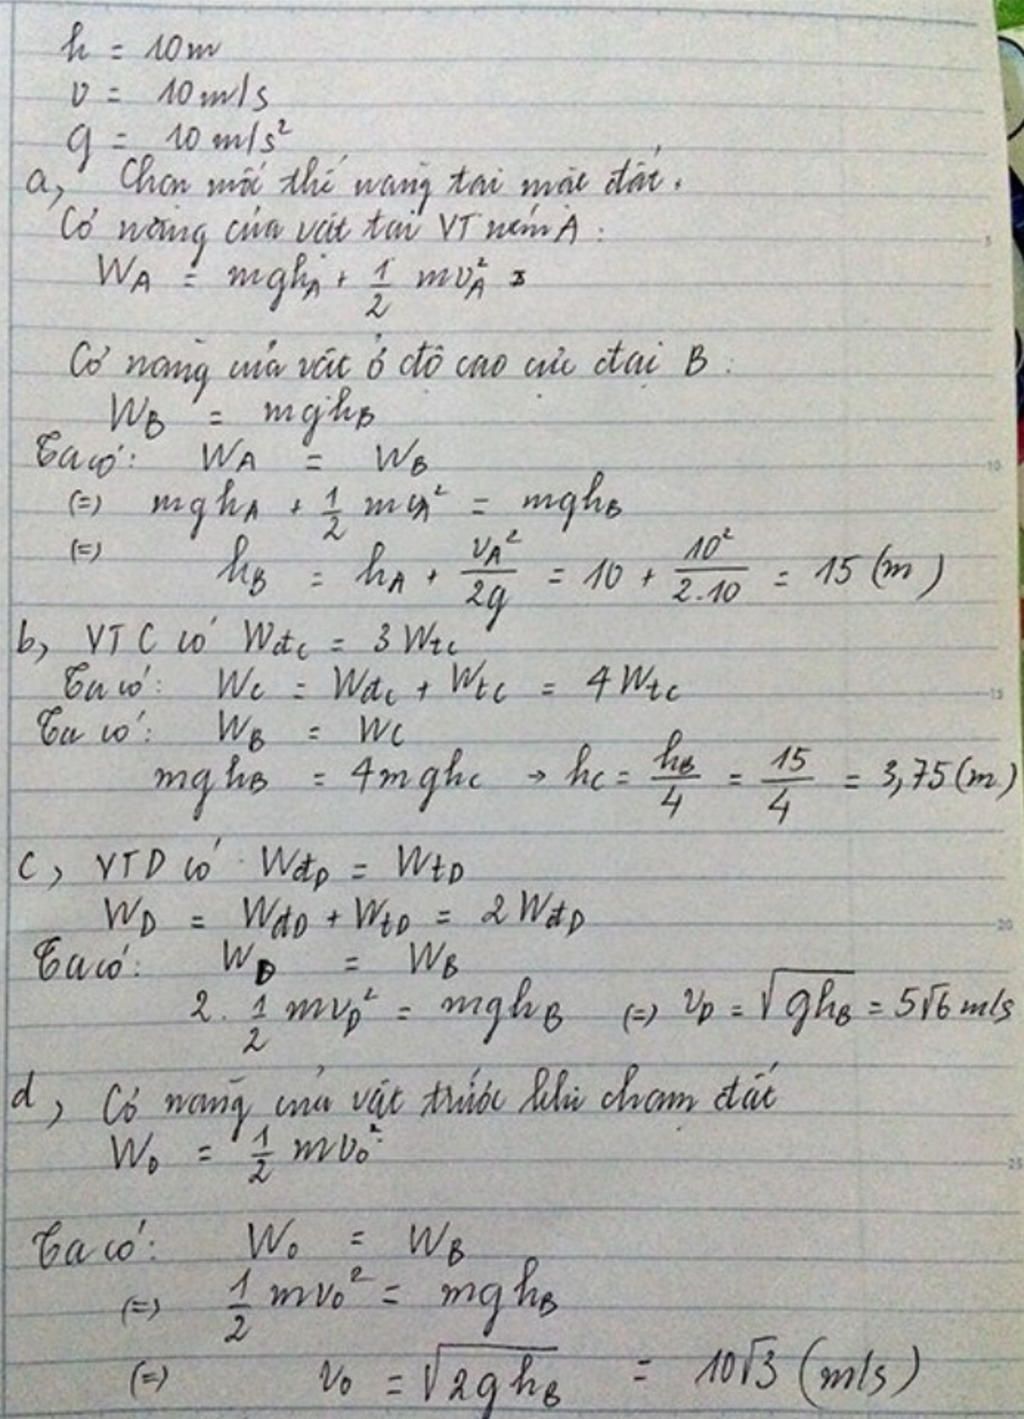 h = 10m
v = 10 m/s
g = 10 m/s²
a, Chọn mốc thế năng tại mặt đất.
Cơ năng của vật tại VT ném A:
W_A = mgh_A + 1/2 mv_A²
Cơ năng của vật ở độ cao cực đại B:
W_B = mgh_B
Ta có: W_A = W_B
(=) mgh_A + 1/2 mv_A² = mgh_B
(=) h_B = h_A + v_A²/2g = 10 + 10²/2.10 = 15 (m)
b, VT C có W_đC = 3 W_tC
Ta có: W_C = W_đC + W_tC = 4 W_tC
Ta có: W_B = W_C
mgh_B = 4mgh_C → h_C = h_B/4 = 15/4 = 3,75 (m)
c, VT D có W_đD = W_tD
W_D = W_đD + W_tD = 2 W_đD
Ta có: W_D = W_B
2. 1/2 mv_D² = mgh_B (=) v_D = √gh_B = 5√6 m/s
d, Cơ năng của vật trước khi chạm đất
W_0 = 1/2 mv_0²
Ta có: W_0 = W_B
(=) 1/2 mv_0² = mgh_B
(=) v_0 = √2gh_B = 10√3 (m/s)